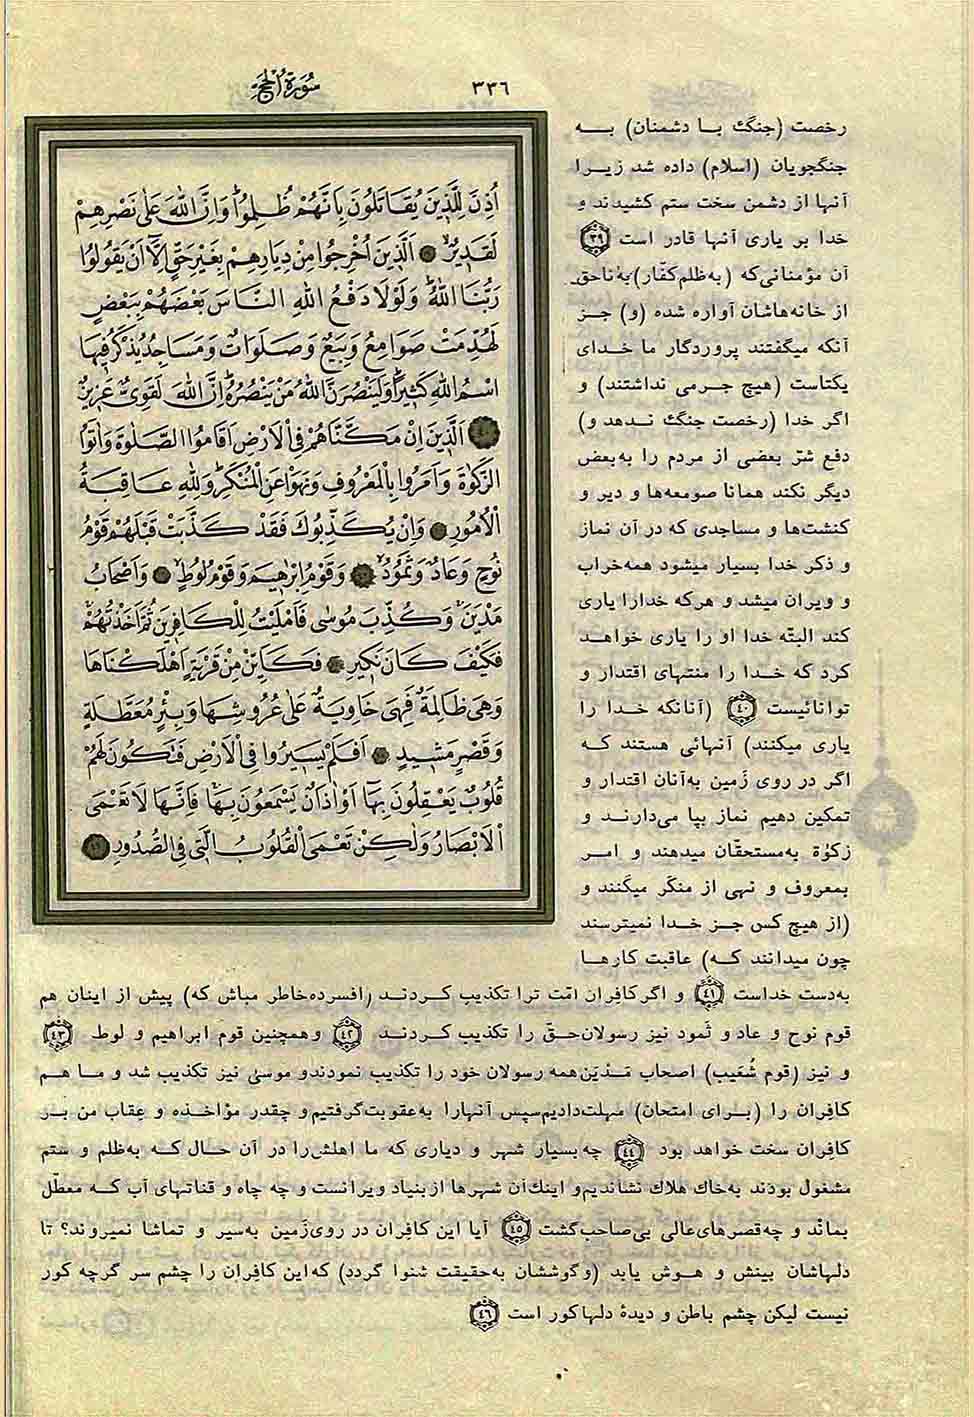 ٣٣٦
سُورَةُ الْحَجِّ
اُذِنَ لِلَّذِينَ يُقَاتَلُونَ بِاَنَّهُمْ ظُلِمُوا وَاِنَّ اللهَ عَلٰى نَصْرِهِمْ
لَقَدِيرٌ الَّذِينَ اُخْرِجُوا مِنْ دِيَارِهِمْ بِغَيْرِ حَقٍّ اِلَّا اَنْ يَقُولُوا
رَبُّنَا اللهُ وَلَوْلَا دَفْعُ اللهِ النَّاسَ بَعْضَهُمْ بِبَعْضٍ
لَهُدِّمَتْ صَوَامِعُ وَبِيَعٌ وَصَلَوَاتٌ وَمَسَاجِدُ يُذْكَرُ فِيهَا
اسْمُ اللهِ كَثِيرًا وَلَيَنْصُرَنَّ اللهُ مَنْ يَنْصُرُهُ اِنَّ اللهَ لَقَوِىٌّ عَزِيزٌ
اَلَّذِينَ اِنْ مَكَّنَّاهُمْ فِى الْاَرْضِ اَقَامُوا الصَّلٰوةَ وَاٰتَوُا
الزَّكٰوةَ وَاَمَرُوا بِالْمَعْرُوفِ وَنَهَوْا عَنِ الْمُنْكَرِ وَلِلّٰهِ عَاقِبَةُ
الْاُمُورِ وَاِنْ يُكَذِّبُوكَ فَقَدْ كَذَّبَتْ قَبْلَهُمْ قَوْمُ
نُوحٍ وَعَادٌ وَثَمُودُ وَقَوْمُ اِبْرٰهِيمَ وَقَوْمُ لُوطٍ وَاَصْحَابُ
مَدْيَنَ وَكُذِّبَ مُوسٰى فَاَمْلَيْتُ لِلْكَافِرِينَ ثُمَّ اَخَذْتُهُمْ
فَكَيْفَ كَانَ نَكِيرِ فَكَاَيِّنْ مِنْ قَرْيَةٍ اَهْلَكْنَاهَا
وَهِىَ ظَالِمَةٌ فَهِىَ خَاوِيَةٌ عَلٰى عُرُوشِهَا وَبِئْرٍ مُعَطَّلَةٍ
وَقَصْرٍ مَشِيدٍ اَفَلَمْ يَسِيرُوا فِى الْاَرْضِ فَتَكُونَ لَهُمْ
قُلُوبٌ يَعْقِلُونَ بِهَا اَوْ اٰذَانٌ يَسْمَعُونَ بِهَا فَاِنَّهَا لَا تَعْمَى
الْاَبْصَارُ وَلٰكِنْ تَعْمَى الْقُلُوبُ الَّتِى فِى الصُّدُورِ
رخصت (جنگ با دشمنان) به
جنگجویان (اسلام) داده شد زیرا
آنها از دشمن سخت ستم کشیدند و
خدا بر یاری آنها قادر است ٣٩
آن مؤمنانی‌که (به‌ظلم‌کفّار) به‌ناحق
از خانه‌هاشان آواره شده (و) جز
آنکه میگفتند پروردگار ما خدای
یکتاست (هیچ جرمی نداشتند) و
اگر خدا (رخصت جنگ ندهد و)
دفع شرّ بعضی از مردم را به‌بعض
دیگر نکند همانا صومعه‌ها و دیر و
کنشت‌ها و مساجدی که در آن نماز
و ذکر خدا بسیار میشود همه‌خراب
و ویران میشد و هرکه خدارا یاری
کند البتّه خدا او را یاری خواهد
کرد که خدا را منتهای اقتدار و
توانائیست ٤٠ (آنانکه خدا را
یاری میکنند) آنهائی هستند که
اگر در روی زَمین به‌آنان اقتدار و
تمکین دهیم نماز بپا می‌دارند و
زکوٰة به‌مستحقّان میدهند و امر
بمعروف و نهی از منکَر میکنند و
(از هیچ کس جز خدا نمیترسند
چون میدانند که) عاقبت کارها
به‌دست خداست ٤١ و اگر کافران امّت ترا تکذیب کردند (افسرده‌خاطر مباش که) پیش از اینان هم
قوم نوح و عاد و ثَمود نیز رسولان‌حقّ را تکذیب کردند ٤٢ وهمچنین قوم ابراهیم و لوط ٤٣
و نیز (قوم شُعَیب) اصحاب مَدْیَن همه رسولان خود را تکذیب نمودندو موسیٰ نیز تکذیب شد و ما هم
کافِران را (برای امتحان) مهلت‌دادیم‌سپس آنهارا به‌عقوبت‌گرفتیم و چقدر مؤاخذه و عِقاب من بر
کافِران سخت خواهد بود ٤٤ چه‌بسیار شهر و دیاری که ما اهلش‌را در آن حال که به‌ظلم و ستم
مشغول بودند به‌خاك هلاك نشاندیم‌و اینك‌آن شهرها از بنیاد ویرانست و چه چاه و قناتهای آب که معطّل
بمانْد و چه‌قصرهای‌عالی بی‌صاحب‌گشت ٤٥ آیا این کافِران در روی‌زَمین به‌سیر و تماشا نمیروند؟ تا
دلهاشان بینش و هوش یابد (و گوششان به‌حقیقت شنوا گردد) که‌این کافِران را چشم سر گرچه کور
نیست لیکن چشم باطن و دیدهٔ دلها کور است ٤٦